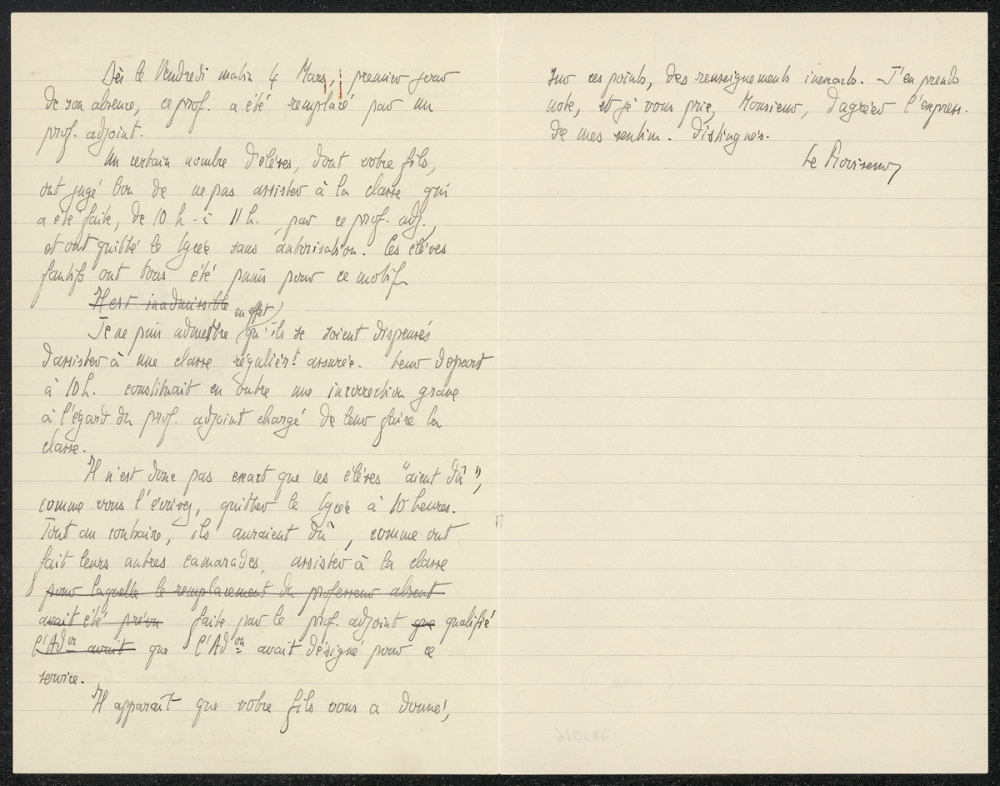 Dès le Vendredi matin 4 Mars, premier jour
de son absence, ce prof. a été remplacé par un
prof. adjoint.
Un certain nombre d'élèves, dont votre fils,
ont jugé bon de ne pas assister à la classe qui
a été faite, de 10 h - à 11 h. par ce prof. adj.,
et ont quitté le lycée sans autorisation. Ces élèves
fautifs ont tous été punis pour ce motif.
Il est inadmissible en effet
Je ne puis admettre qu'ils se soient dispensés
d'assister à une classe régulièrt assurée. Leur départ
à 10 h. constituait en outre une incorrection grave
à l'égard du prof. adjoint chargé de leur faire la
classe.
Il n'est donc pas exact que ces élèves "aient dû",
comme vous l'écrivez, quitter le lycée à 10 heures.
Tout au contraire, ils auraient dû, comme ont
fait leurs autres camarades, assister à la classe
pour laquelle le remplacement du professeur absent
avait été prévu faite par le prof. adjoint que qualifié
l'Adon avait que l'Adon avait désigné pour ce
service.
Il apparaît que votre fils vous a donné,
sur ces points, des renseignements inexacts. J'en prends
note, et je vous prie, Monsieur, d'agréer l'express.
de mes sentim. distingués.
Le Proviseur,